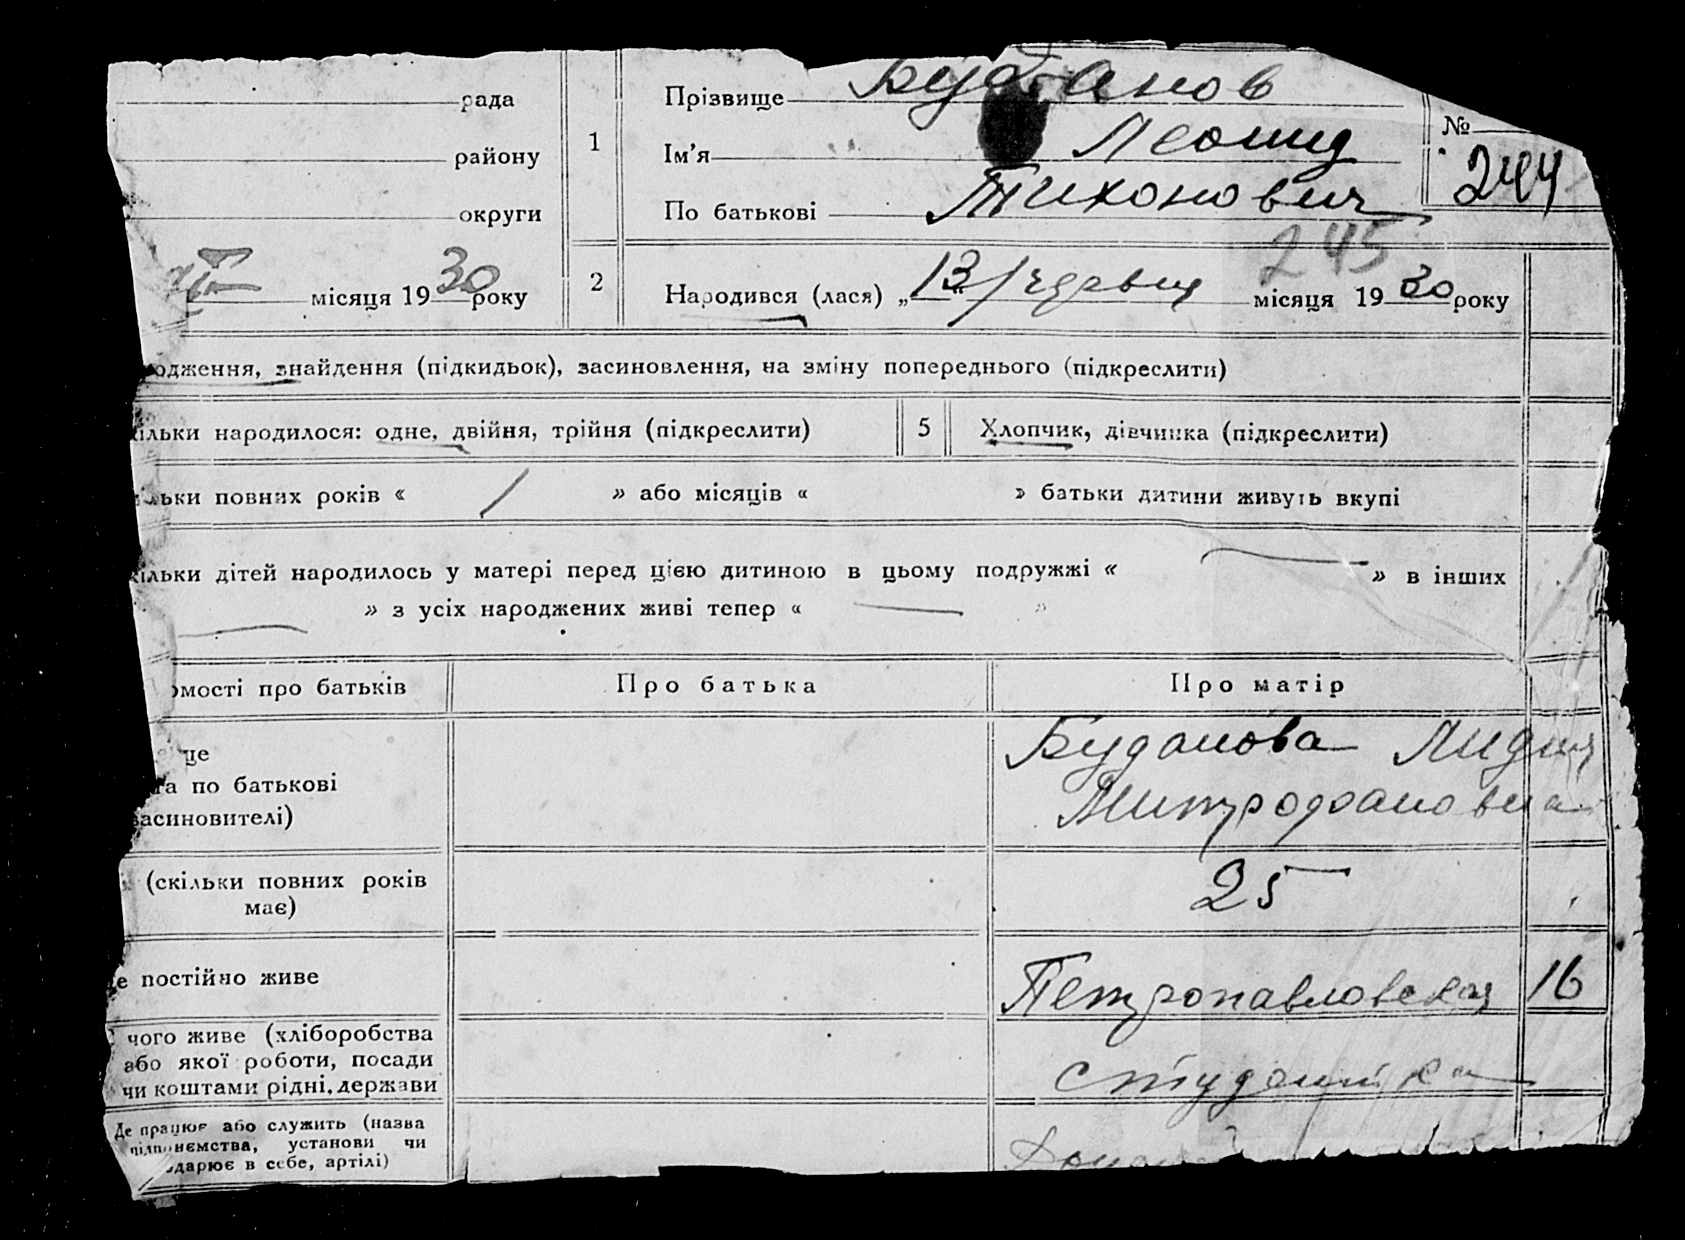 рада
району
округи
місяця 1930 року
1
Прізвище Буданов
Ім'я Леонид
По батькові Тихонович
№
244
245
2
Народився (лася) „13“ / чдрвця місяця 1930 року
одження, знайдення (підкидьок), засиновлення, на зміну попереднього (підкреслити)
ільки народилося: одне, двійня, трійня (підкреслити)
5
Хлопчик, дівчинка (підкреслити)
ільки повних років « / » або місяців « » батьки дитини живуть вкупі
ільки дітей народилось у матері перед цією дитиною в цьому подружжі « — » в інших
— » з усіх народжених живі тепер « — »
омості про батьків
Про батька
Про матір
ще
та по батькові
засиновителі)
Буданова Лидия
Митрофановна
(скільки повних років
має)
25
е постійно живе
Петропавловская 16
чого живе (хліборобства
або якої роботи, посади
чи коштами рідні, держави
студентка
Де працює або служить (назва
підприємства, установи чи
одарює в себе, артілі)